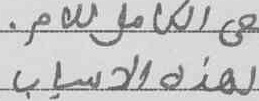 هي الكامل للام.
لهذه الاسباب